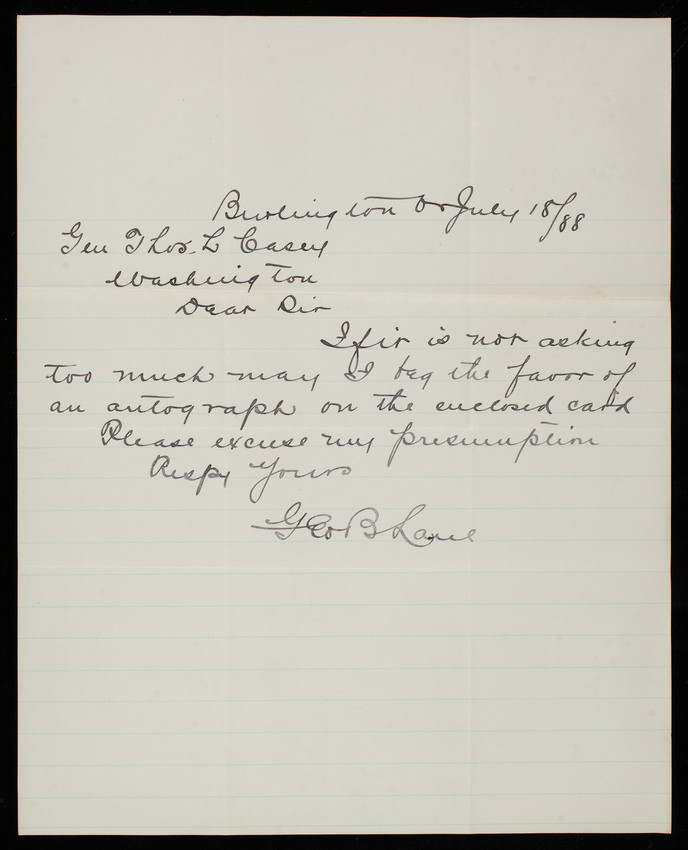 Burlington Vt July 18/88
Gen Thos. L Casey
Washington
Dear Sir
If it is not asking
too much may I beg the favor of
an autograph on the enclosed card
Please excuse my presumption
Respy Yours
Geo B Lane